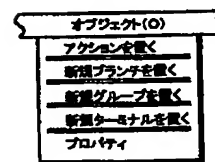 オブジェクト(O)
アクションを置く
新規ブランチを置く
新規グループを置く
新規ターミナルを置く
プロパティ